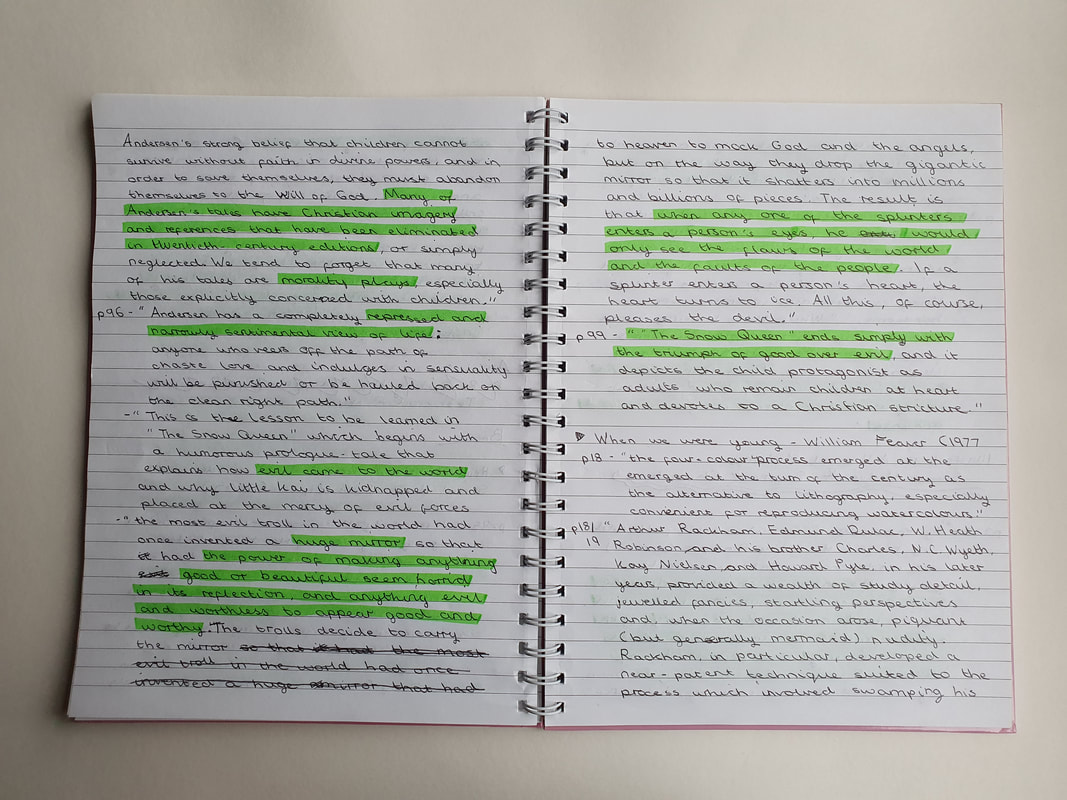 Andersen's strong belief that children cannot
survive without faith in divine powers, and in
order to save themselves, they must abandon
themselves to the Will of God. Many of
Andersen's tales have Christian imagery
and references that have been eliminated
in twentieth-century editions, or simply
neglected. We tend to forget that many
of his tales are morality plays, especially
those explicitly concerned with children."
p96 - "Andersen has a completely repressed and
narrowly sentimental view of life:
anyone who veers off the path of
chaste love and indulges in sensuality
will be punished or be hauled back on
the clean right path."
- "This is the lesson to be learned in
"The Snow Queen" which begins with
a humorous prologue-tale that
explains how evil came to the world
and why little Kai is kidnapped and
placed at the mercy of evil forces
- "the most evil troll in the world had
once invented a huge mirror so that
it had the power of making anything
good or beautiful seem horrid
in its reflection, and anything evil
and worthless to appear good and
worthy. "The trolls decide to carry
the mirror so that it had the most
evil troll in the world had once
invented a huge mirror that had
to heaven to mock God and the angels,
but on the way they drop the gigantic
mirror so that it shatters into millions
and billions of pieces. The result is
that when any one of the splinters
enters a person's eyes, he would
only see the flaws of the world
and the faults of the people. If a
splinter enters a person's heart, the
heart turns to ice. All this, of course,
pleases the devil."
p99 - ""The Snow Queen" ends simply with
the triumph of good over evil, and it
depicts the child protagonist as
adults who remain children at heart
and devotes to a Christian stricture."
When we were young - William Feaver (1977
p18 - "the four-colour process emerged at the
emerged at the turn of the century as
the alternative to lithography, especially
convenient for reproducing watercolours"
p18/ "Arthur Rackham, Edmund Dulac, W. Heath
19 Robinson and his brother Charles, N.C. Wyeth,
Kay Nielsen and Howard Pyle, in his later
years, provided a wealth of study detail,
jewelled fancies, startling perspectives
and, when the occasion arose, piquant
(but generally mermaid) nudity.
Rackham, in particular, developed a
near-patent technique suited to the
process which involved swamping his